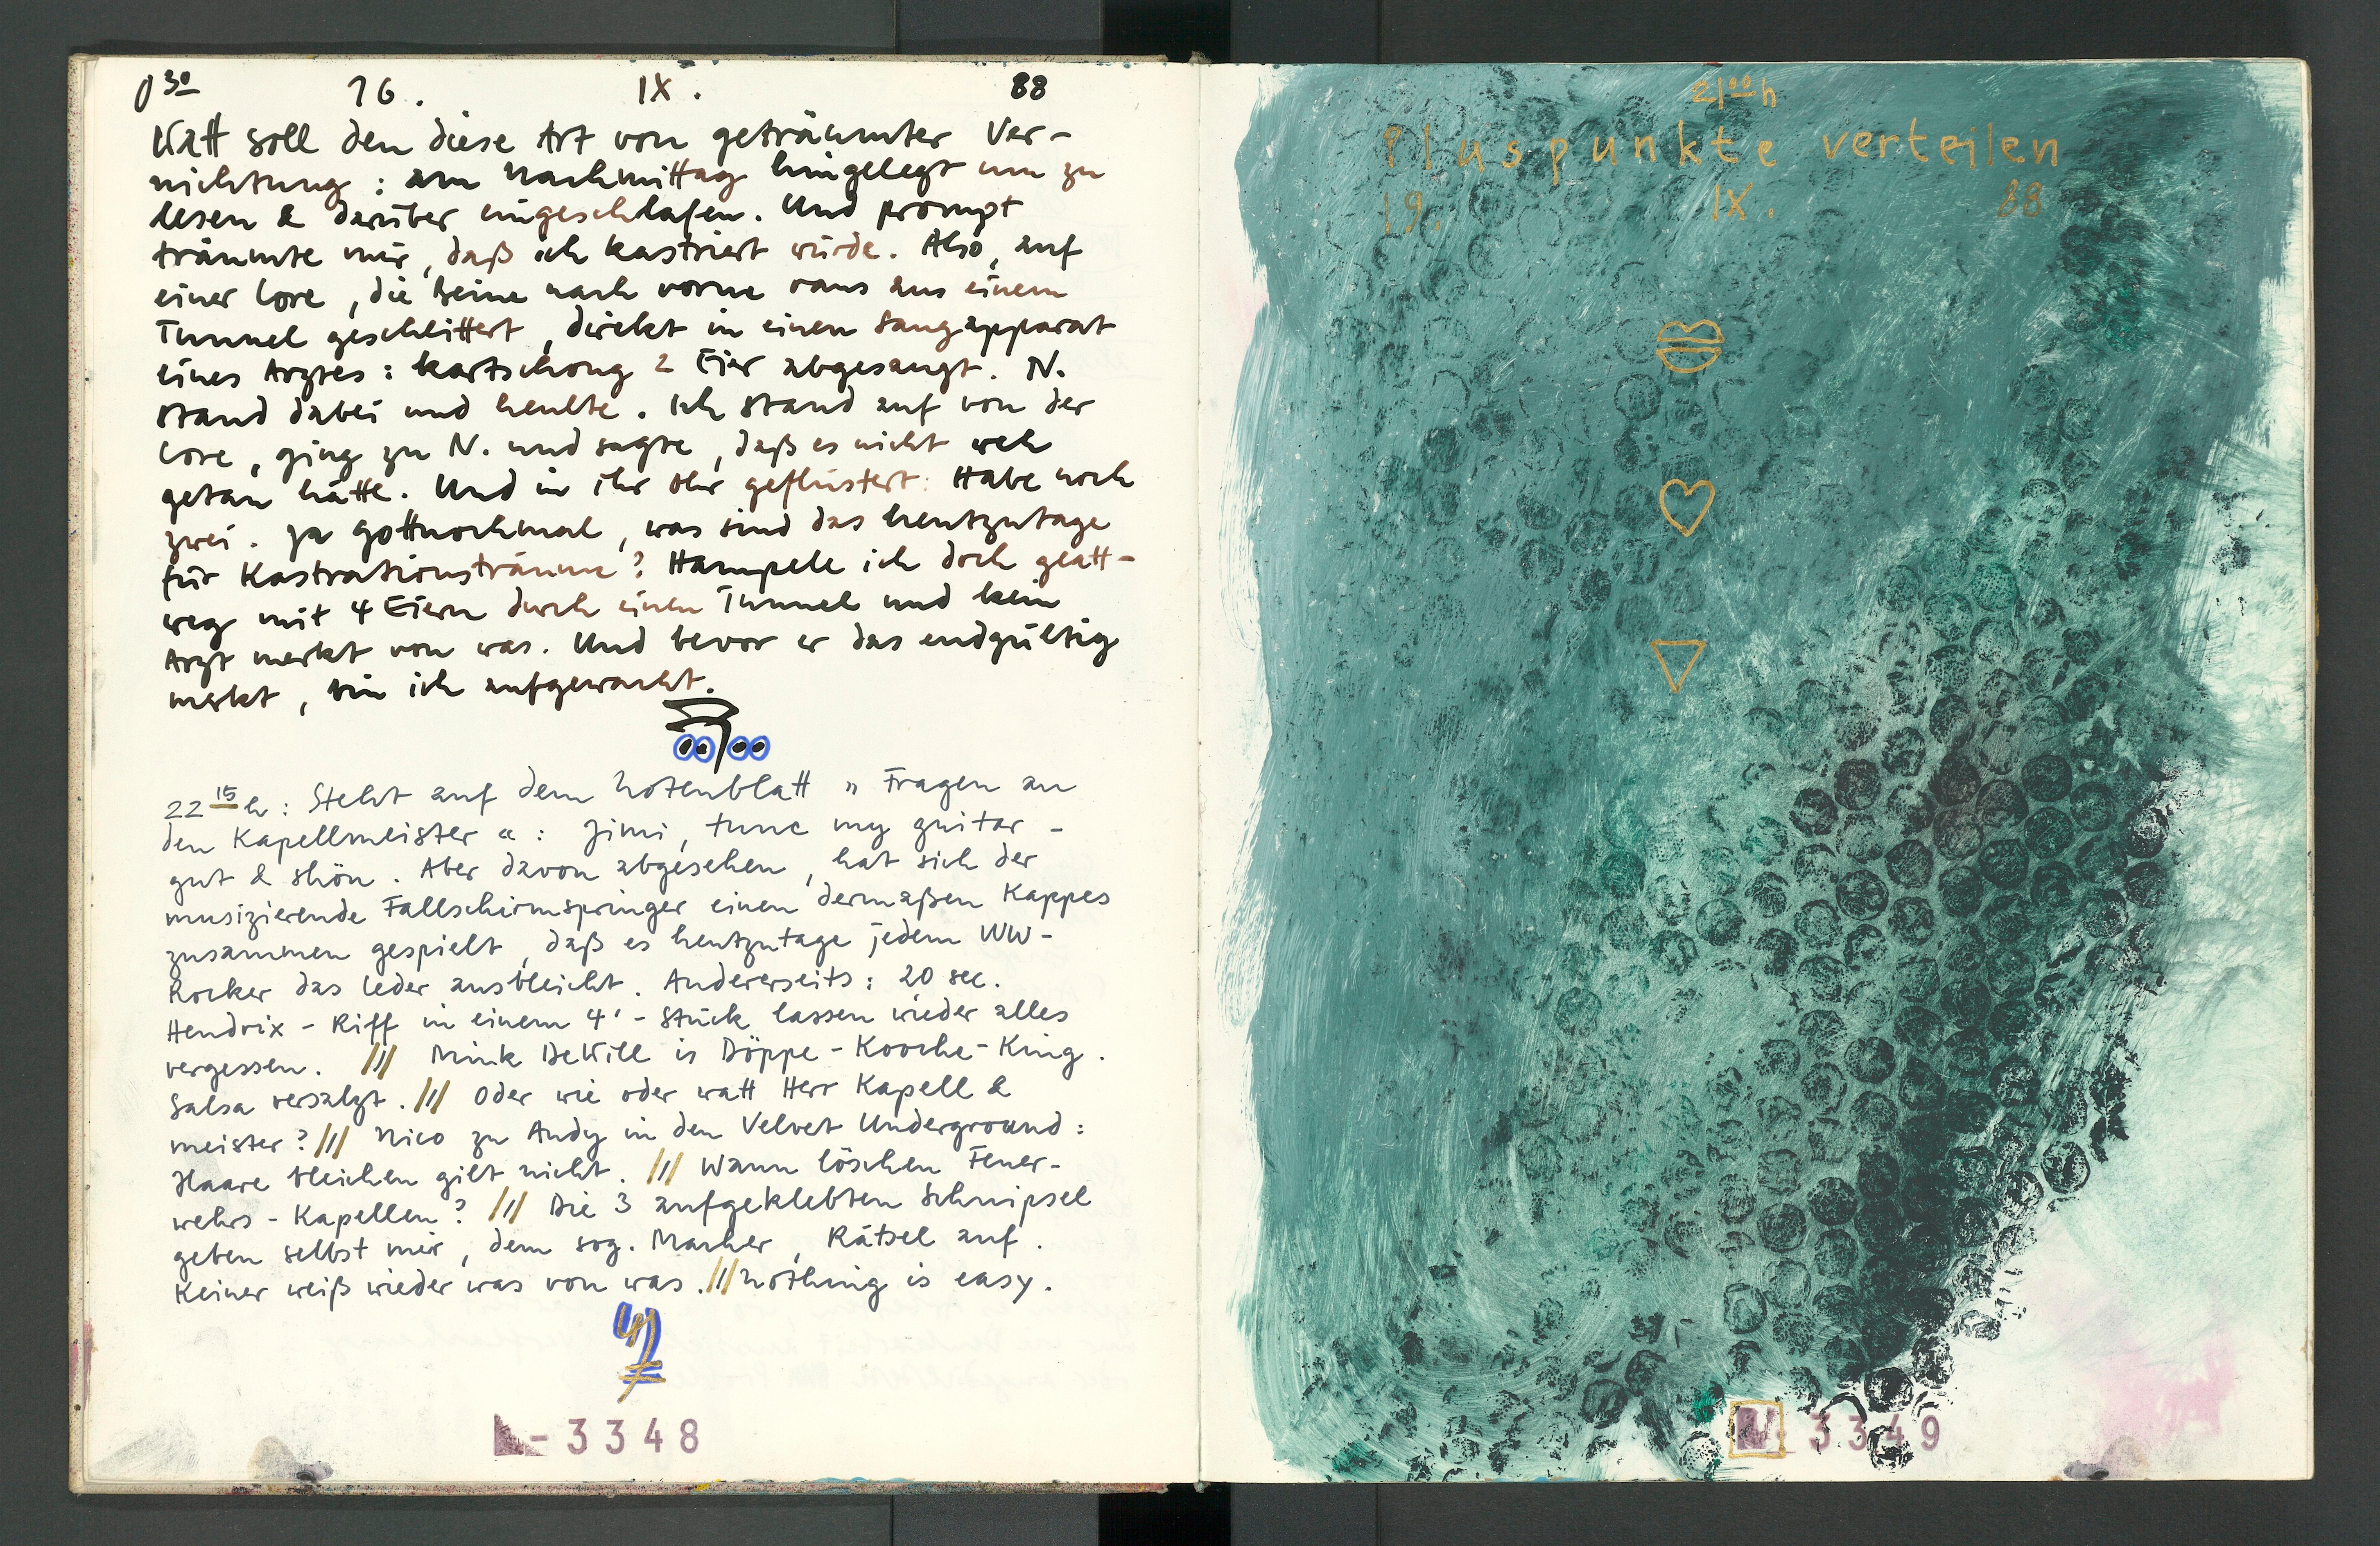 0³⁰ 16. IX. 88
Watt soll den diese Art von geträumter Ver-
nichtung : am Nachmittag hingelegt um zu
lesen & darüber eingeschlafen. Und prompt
träumte mir, daß ich kastriert würde. Also, auf
einer Lore, die Beine nach vorne raus aus einem
Tunnel geschlittert, direkt in einen Saugapparat
eines Arztes : kartschong 2 Eier abgesaugt. N.
stand dabei und heulte. Ich stand auf von der
Lore, ging zu N. und sagte, daß es nicht weh
getan hätte. Und in ihr Ohr geflüstert: Habe noch
zwei. Ja gottnochmal, was sind das heutzutage
für Kastrationsträume? Hampele ich doch glatt-
weg mit 4 Eiern durch einen Tunnel und kein
Arzt merkt von was. Und bevor er das endgültig
merkt, bin ich aufgewacht.
22¹⁵h : Steht auf dem Notenblatt "Fragen an
den Kapellmeister" : Jimi, tune my guitar -
gut & schön. Aber davon abgesehen, hat sich der
musizierende Fallschirmspringer einen dermaßen Kappes
zusammen gespielt, daß es heutzutage jedem WW-
Rocker das Leder ausbleicht. Andererseits : 20 sec.
Hendrix - Riff in einem 4' - Stück lassen wieder alles
vergessen. /// Mink DeWill is Döppe - Kooche - King.
Salsa versalzt. /// Oder wie oder watt Herr Kapell &
meister? /// Nico zu Andy in den Velvet Underground :
Haare bleichen gilt nicht. /// Wann löschen Feuer-
wehrs - Kapellen? /// Die 3 aufgeklebten Schnipsel
geben selbst mir, dem sog. Macher, Rätsel auf.
Keiner weiß wieder was von was. /// Nothing is easy.
- 3348
21⁰⁰h
Pluspunkte verteilen
19. IX. 88
3349